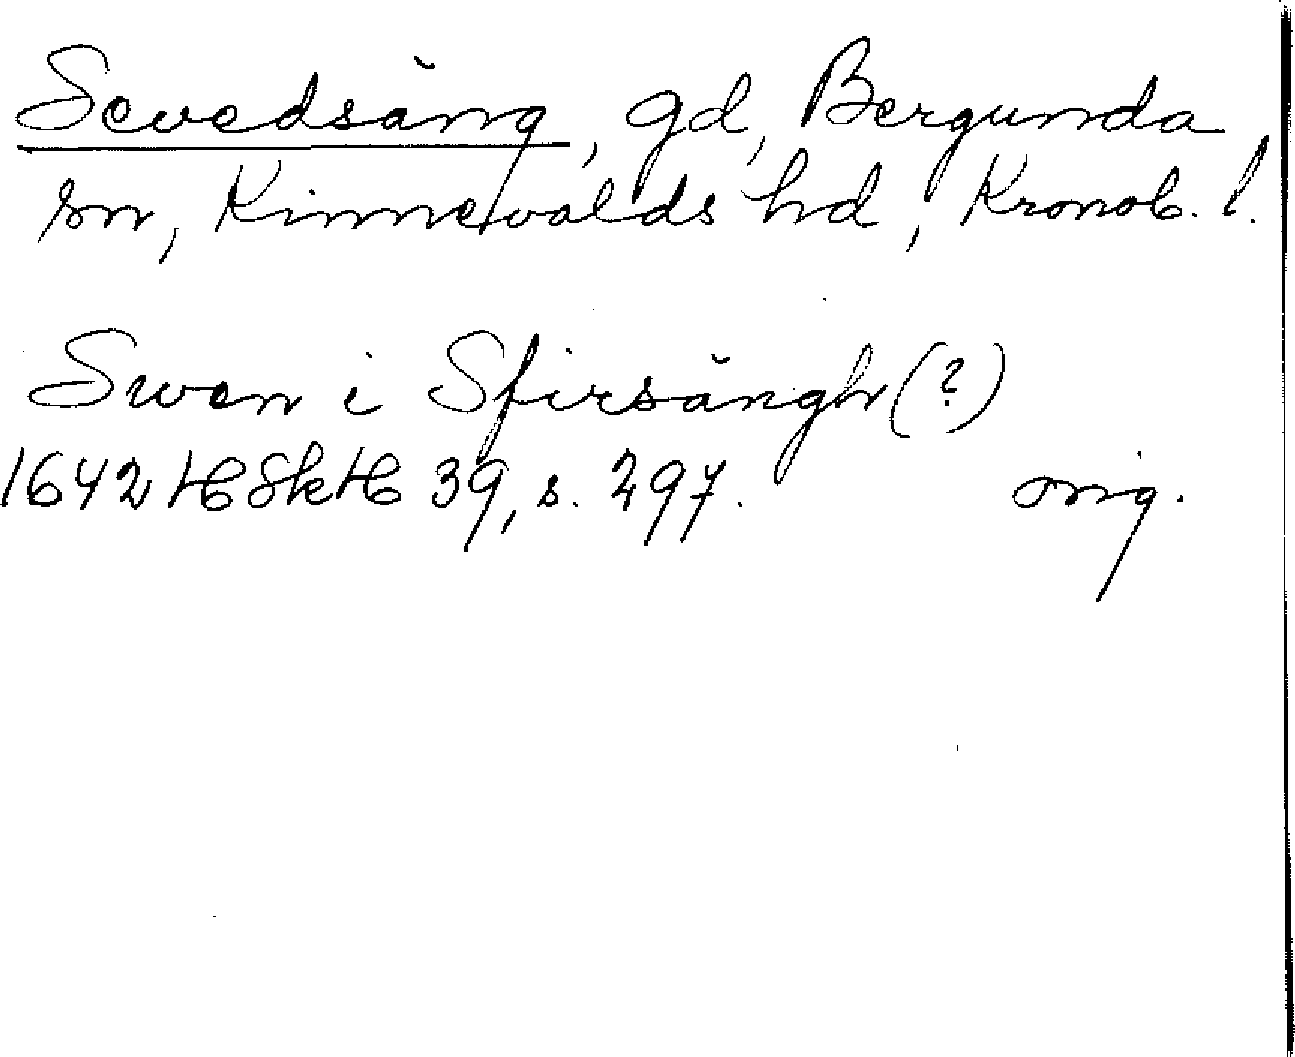 Sevedsäng, gd, Bergunda
sn, Kinnevalds hd, Kronob. l.
Swen i Sfirsängh (?)
1642 HSkH 39, s. 297. orig.